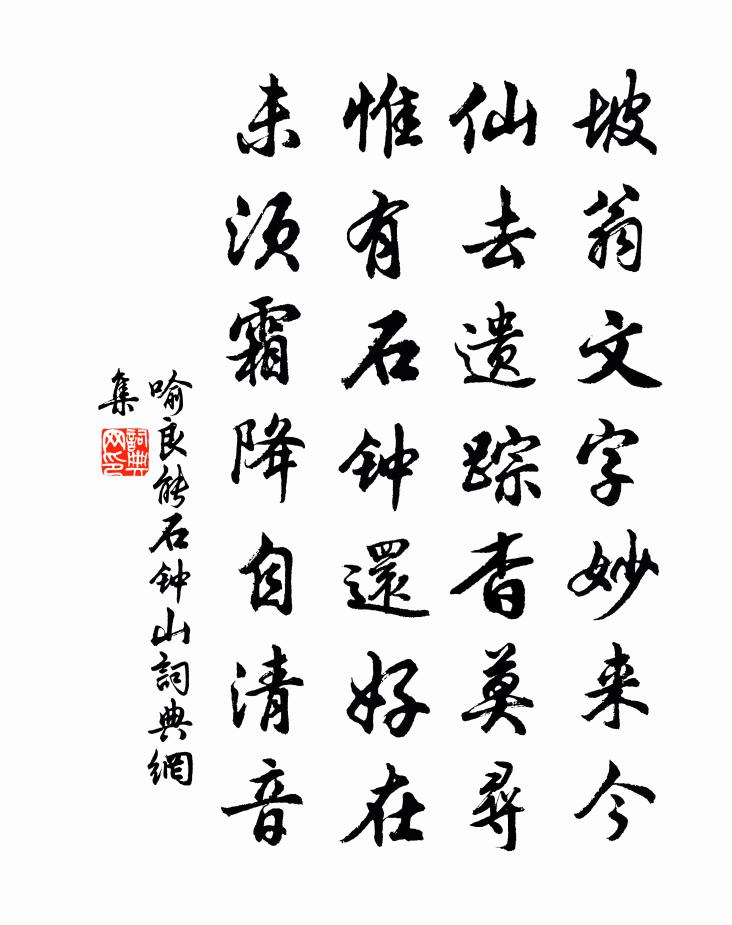 坡翁文字妙来今
仙去遗踪杳莫尋
惟有石钟還好在
未须霜降自清音
喻良能石钟山詞典網
集
詞典网印